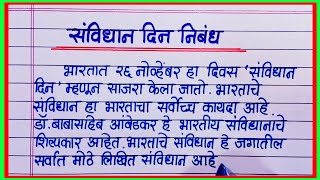 संविधान दिन निबंध
भारतात २६ नोव्हेंबर हा दिवस 'संविधान
दिन' म्हणून साजरा केला जातो. भारताचे
संविधान हा भारताचा सर्वोच्च कायदा आहे.
डॉ. बाबासाहेब आंबेडकर हे भारतीय संविधानाचे
शिल्पकार आहेत. भारताचे संविधान हे जगातील
सर्वात मोठे लिखित संविधान आहे.